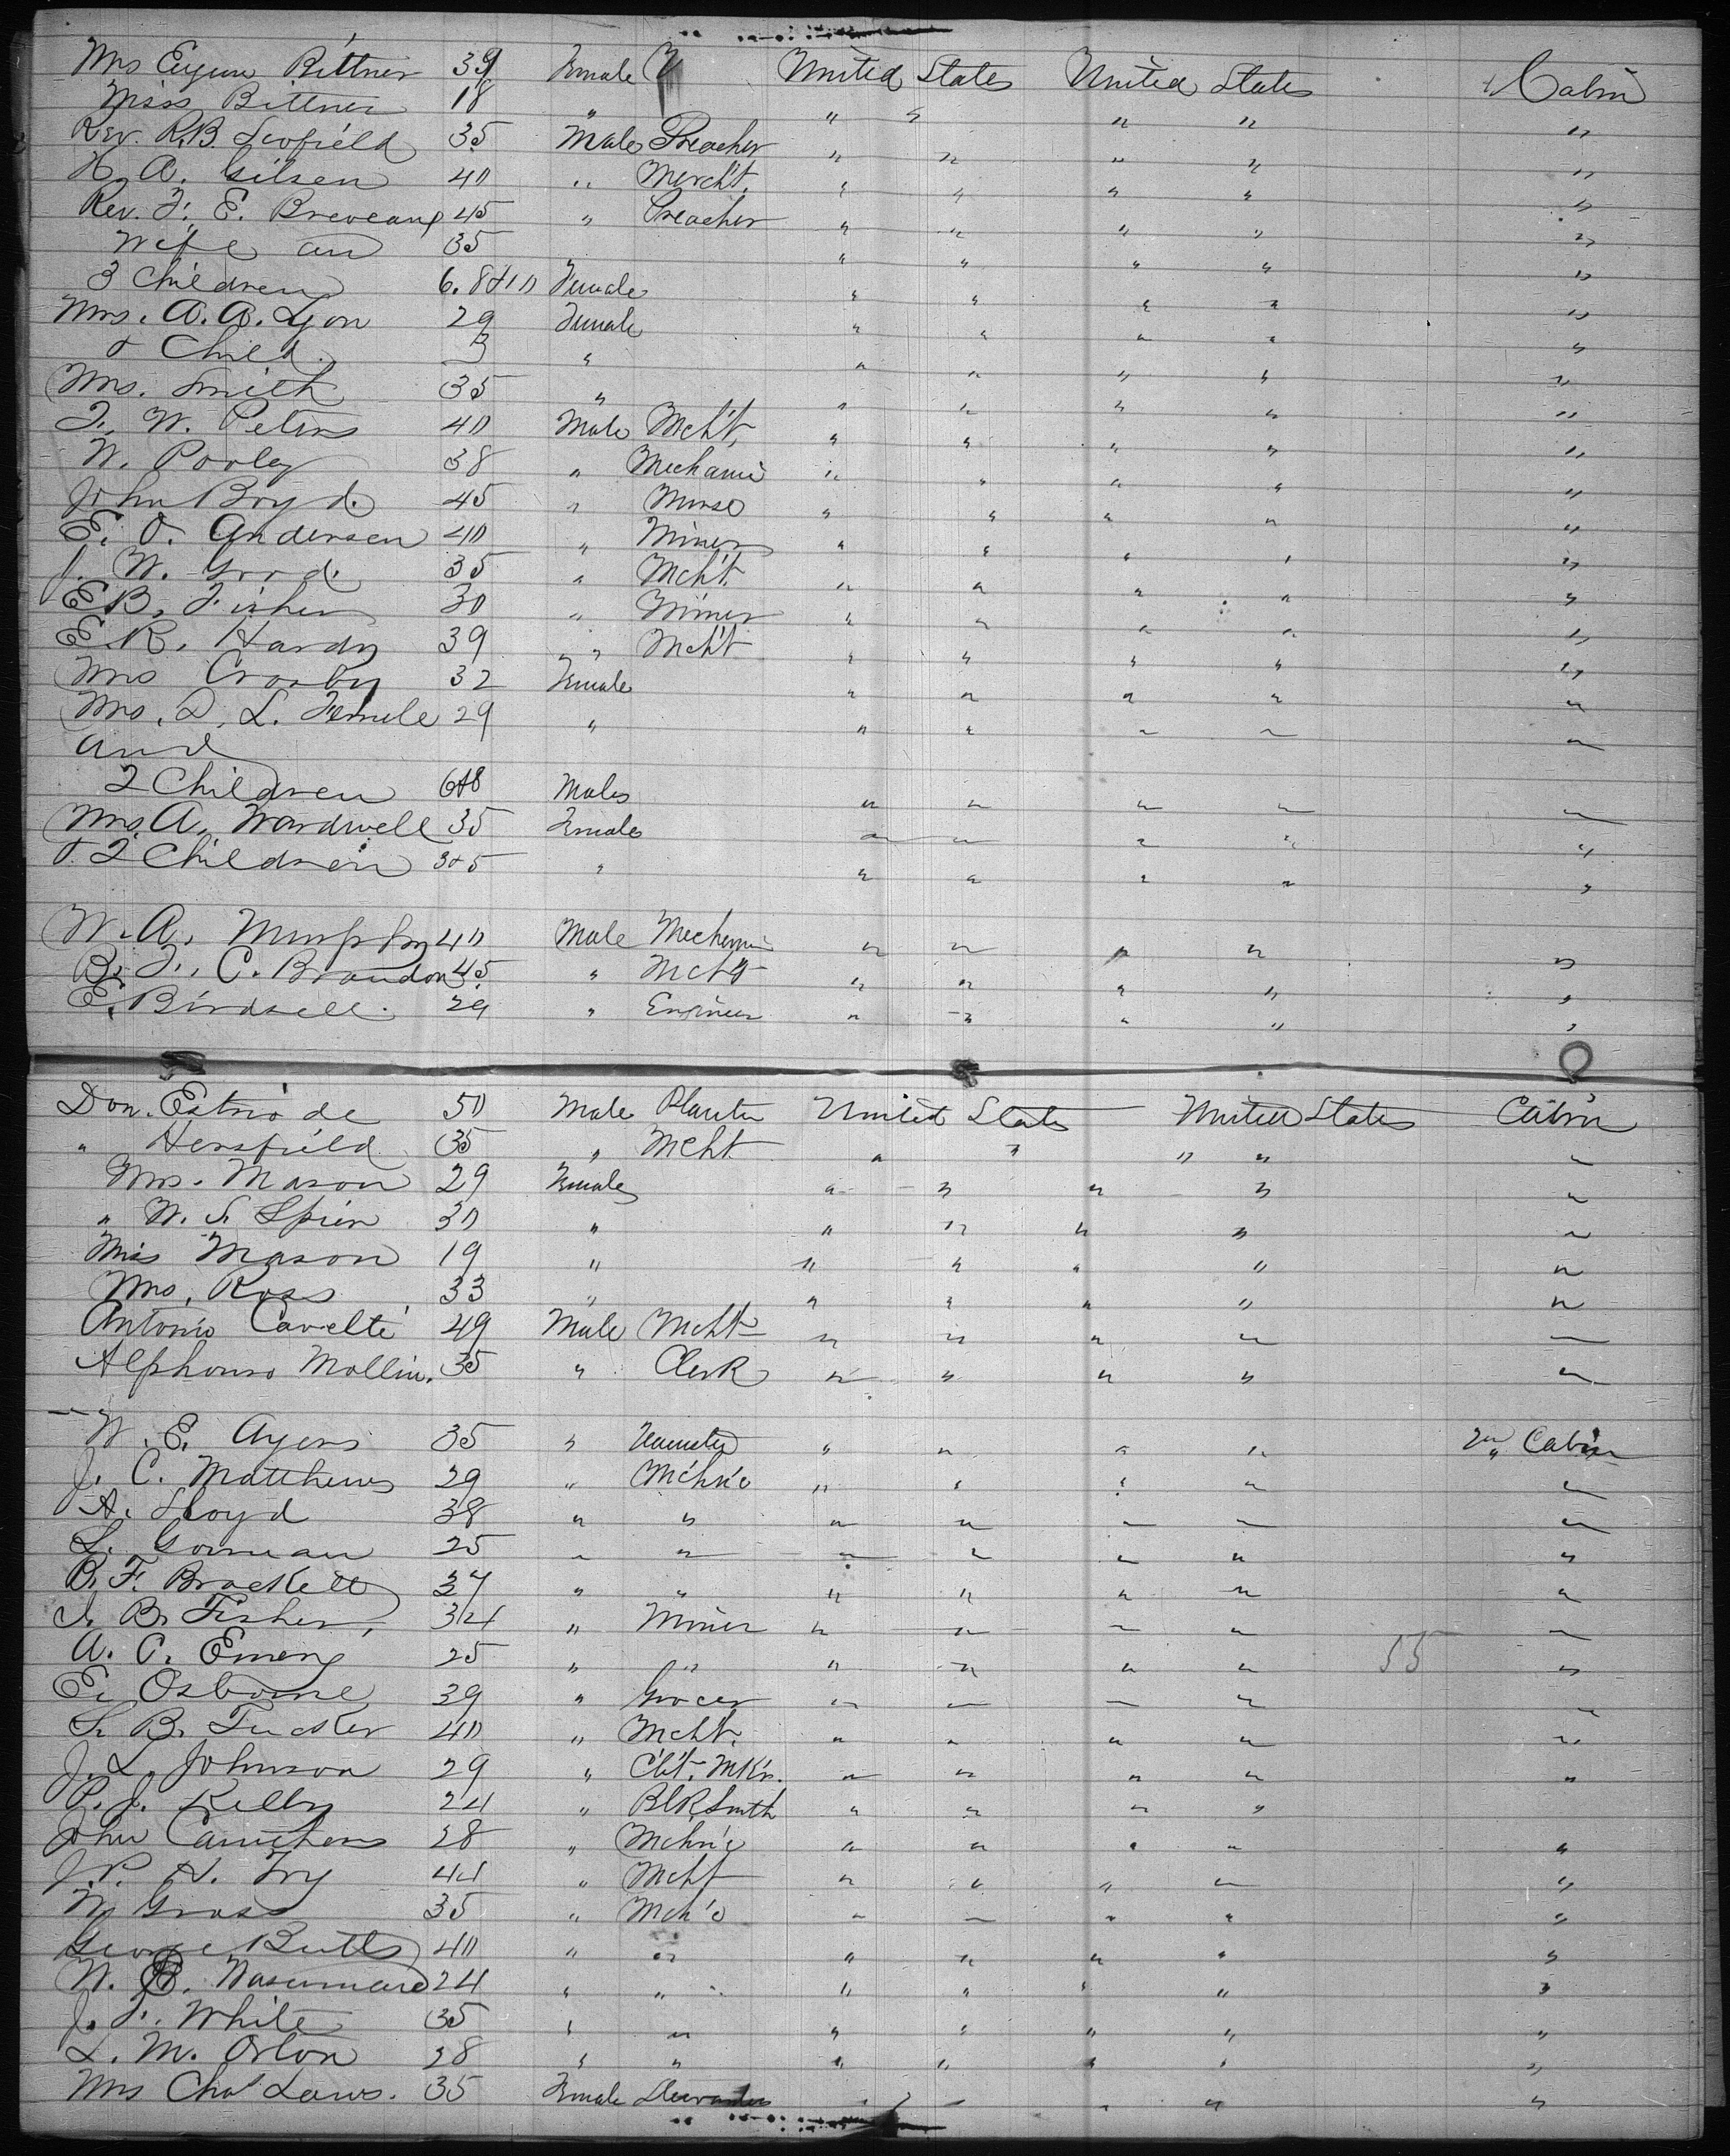 Mrs Eugene Bittner 39 Female United States United States Cabin
Miss Bittner 18 " " " " " "
Rev. R.B. Scofield 35 Male Preacher " " " " "
H. A. Gilsen 40 " Mercht. " " " " "
Rev. F. E. 45 " Preacher " " " " "
Wife an 35 " " " " " "
3 Children 6. 8 & 10 Female " " " " "
Mrs. A. A. Lyon 29 Female " " " " "
& Child. 3 " " " " " "
Mrs. Smith 35 " " " " " "
F. W. Peters 40 Male Mcht. " " " " "
W. Pooley 38 " Mechanic " " " " "
John Boyd. 45 " " " " " "
E. O. Andersen 40 " Miner " " " " "
J. W. Good. 35 " Mcht. " " " " "
E B. Fisher 30 " Miner " " " " "
E. R. Hardy 39 " Mcht " " " " "
Mrs Crosby 32 Female " " " " "
Mrs. D. L. 29 " " " " " "
and
2 Children 6 & 8 Males " " " " "
Mrs. A. Wardwell 35 Female " " " " "
& 2 Children 3 & 5 " " " " " "
W. A. Murphy 40 Male Mechanic " " " " "
B. F. C. Brandon 45 " Mcht " " " " "
E. Birdsell. 29 " Engineer " " " " "
Don. de 50 Male Planter United States United States Cabin
" Hersfield 35 " Mcht. " " " " "
Mrs. Mason 29 Female " " " " "
" W. S. Spier 30 " " " " " "
Miss Mason 19 " " " " " "
Mrs. Ross 33 " " " " " "
Antonio Cavelti 49 Male Mcht " " " " "
Alphonso Mollin. 35 " Clerk " " " " "
W. E. Ayers 35 " Teamster " " " " 2nd Cabin
J. C. Matthews 29 " Mchn'c " " " " "
A. Lloyd 38 " " " " " " "
L. Gorman 25 " " " " " " "
B. F. Brackett 37 " " " " " " "
J. B. Fisher, 34 " Miner " " " " "
A. C. Emery 25 " " " " " " 55 "
E. Osborne 39 " Grocer " " " " "
S. B. Tucker 40 " Mcht. " " " " "
J. L. Johnson 29 " Cbt. Mkr. " " " " "
P. J. Kelly 24 " Blk Smith " " " "
John Caruthers 28 " Mchn'c " " " " "
J. P. H. Fry 44 " Mcht " " " " "
W. Gross 35 " Mch'c " " " " "
George Butts 40 " " " " " " "
W. B. 24 " " " " " " "
J. F. White 35 " " " " " " "
L. M. Orton 28 " " " " " " "
Mrs Chas Laws. 35 Female " " " " "